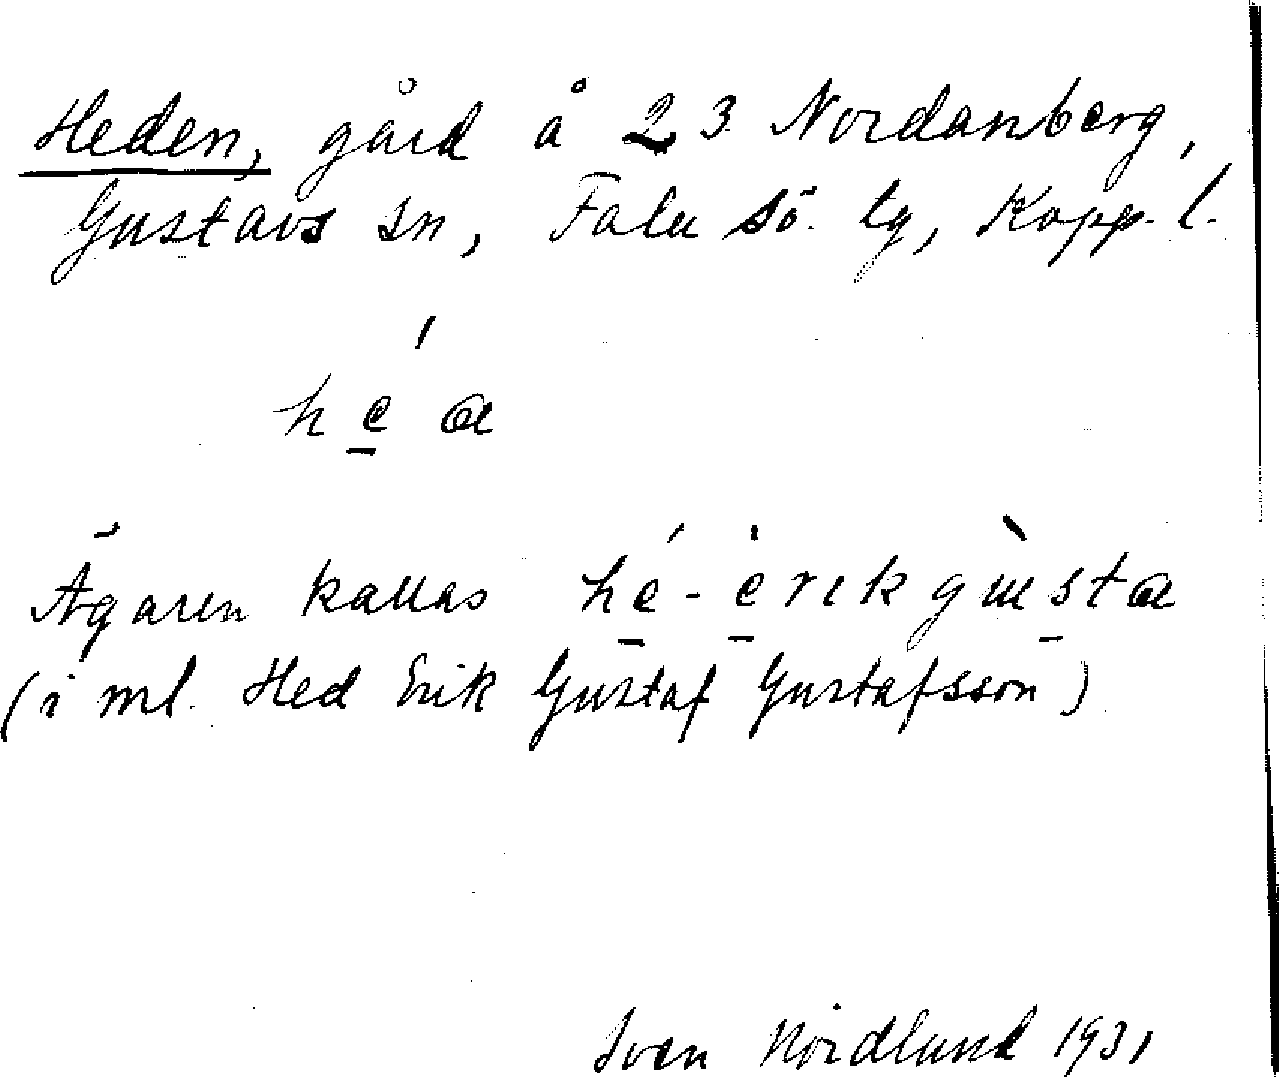 Heden, gård å 23 Nordanberg,
Gustavs sn, Falu sö. lg, Kopp. l.
hé̲ a
Ägaren kallas hé̲-ė̲rik gù̲sta
(i ml. Hed Erik Gustaf Gustafsson)
Sven Nordlund 1931